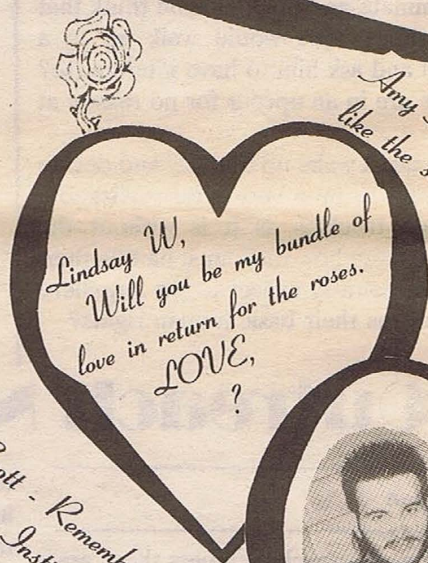 Amy
like the
Lindsay W,
Will you be my bundle of
love in return for the roses.
LOVE,
?
ott - Rememb
Inst